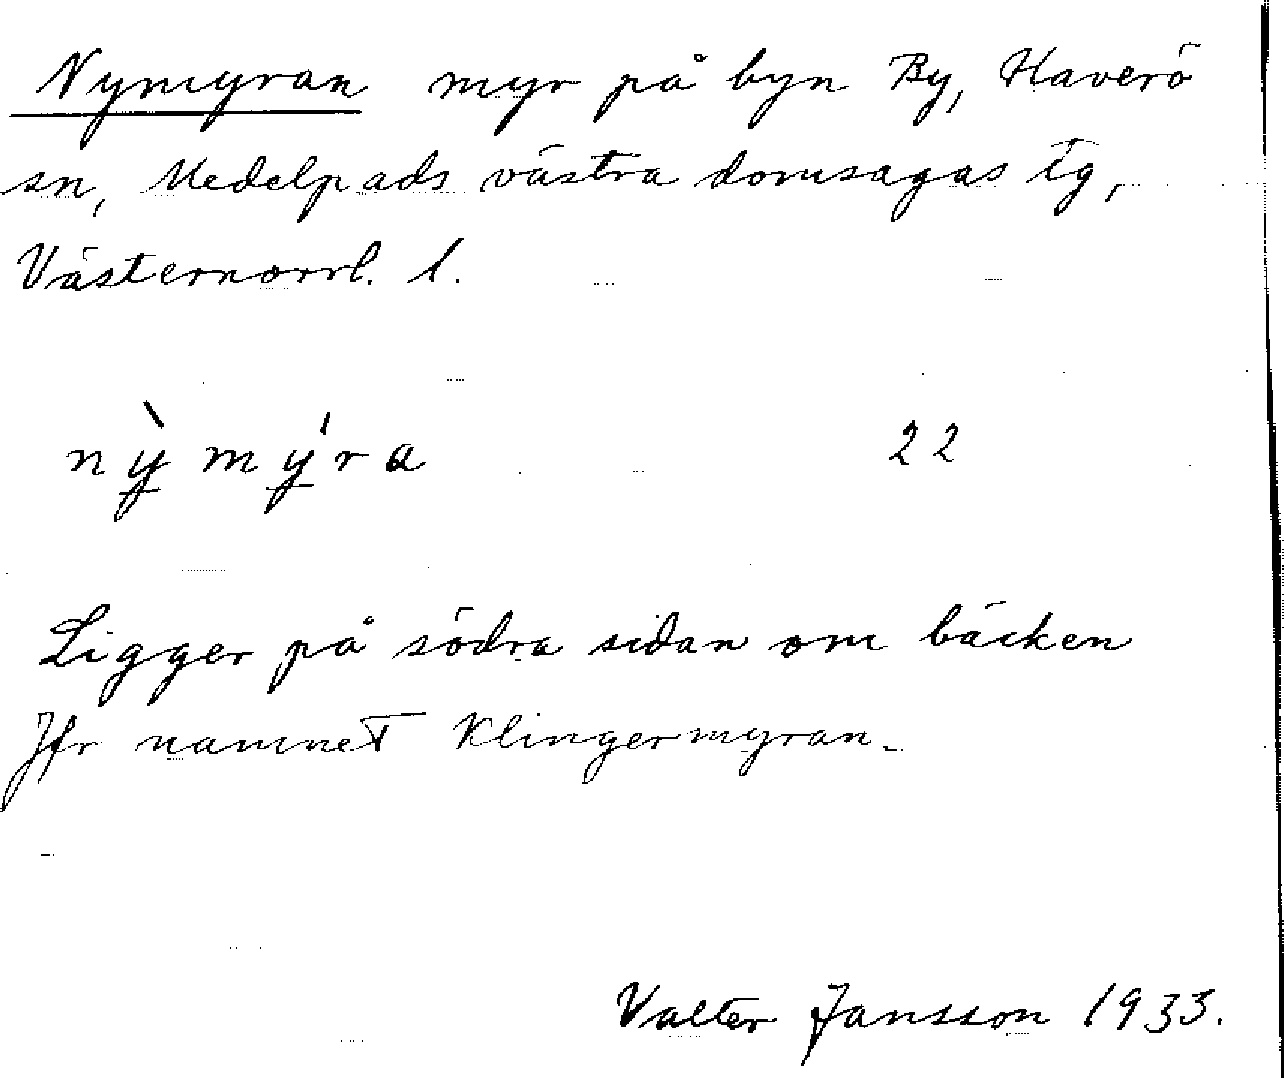 Nymyran myr på byn By, Haverö
sn, Medelpads västra domsagas tg,
Västernorrl. l.
nỳmýra 22
Ligger på södra sidan om bäcken
Jfr namnet Klingermyran.
Valter Jansson 1933.